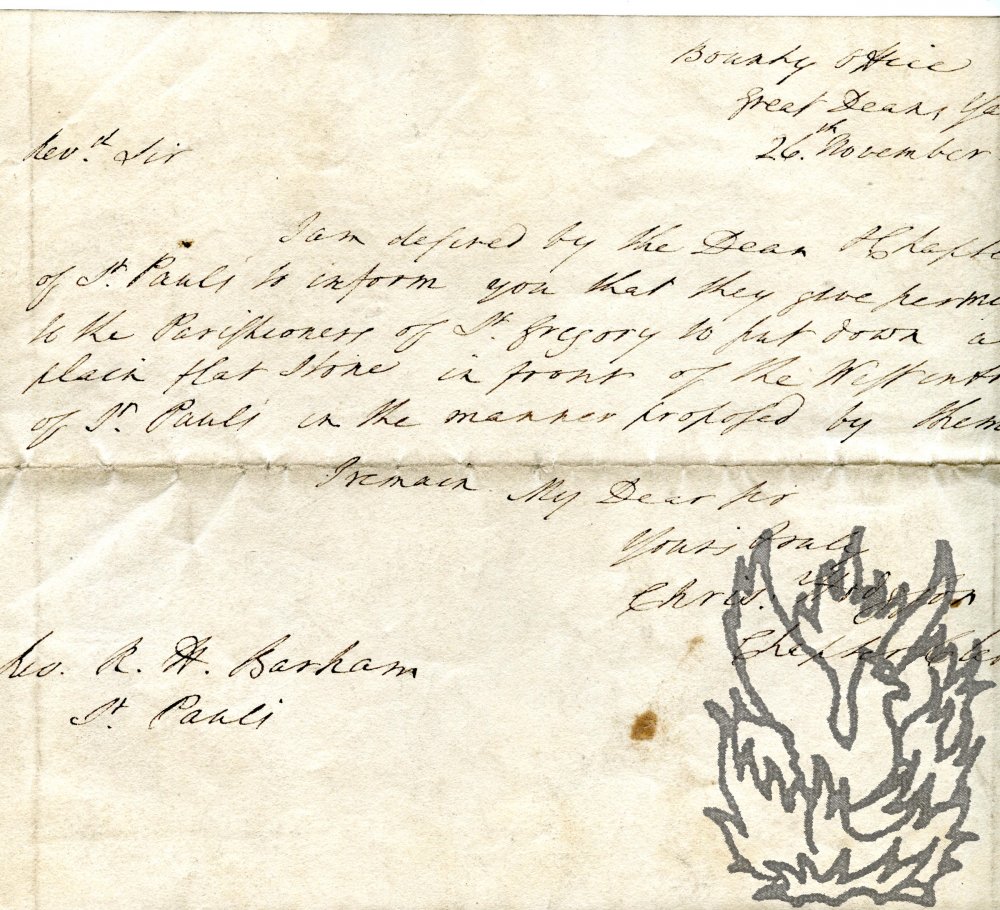 Bounty Office
Great Deans Ya
26.th November
Rev.d Sir
I am desired by the Dean & Chapte
of St. Pauls to inform you that they give permi
to the Parishioners of St. Gregory to put down a
plain flat Stone in front of the West entr
of St. Pauls in the manner proposed by them
I remain My Dear Sir
Yours truly
Chris. Hodgson
Chapter Cler
Rev. R. H. Barham
St. Pauls